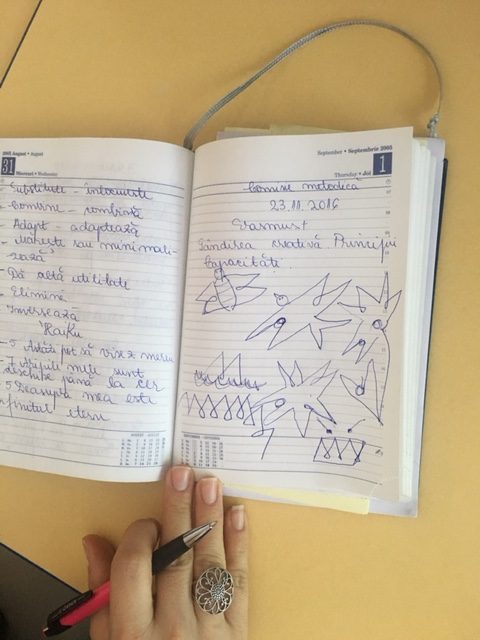 2005 August • August
31
Miercuri • Wednesday
- Substitute - înlocuiește
- Combine - combină
- Adapt - adaptează
- Mărește sau minimali-
zază
- Dă altă utilitate
- Elimină
- Inversează
Haiku
- 5 Astăzi pot să visez mereu
- 7 Aripile mele sunt
deschise până la cer
- 5 Deasupra mea este
infinitul etern
AUGUST • AUGUST
September • Septembrie 2005
Thursday • Joi
1
Comisie metodică
23.11.2016
Erasmus+
Gândirea creativă Principii
Capacități